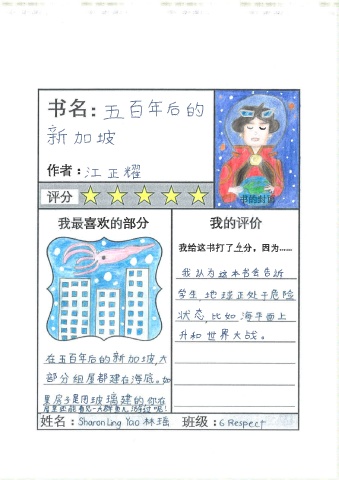 书名: 五百年后的
新加坡
作者: 江正耀
书的封面
评分
我最喜欢的部分
在五百年后的新加坡,大
部分组屋都建在海底。如
果房子是用玻璃建的,你在
房里还能看见一大群鱼儿游过呢!
我的评价
我给这书打了五分,因为......
我认为这本书会告诉
学生地球正处于危险
状态,比如海平面上
升和世界大战。
姓名: Sharon Ling Yao 林瑶 班级: 6 Respect